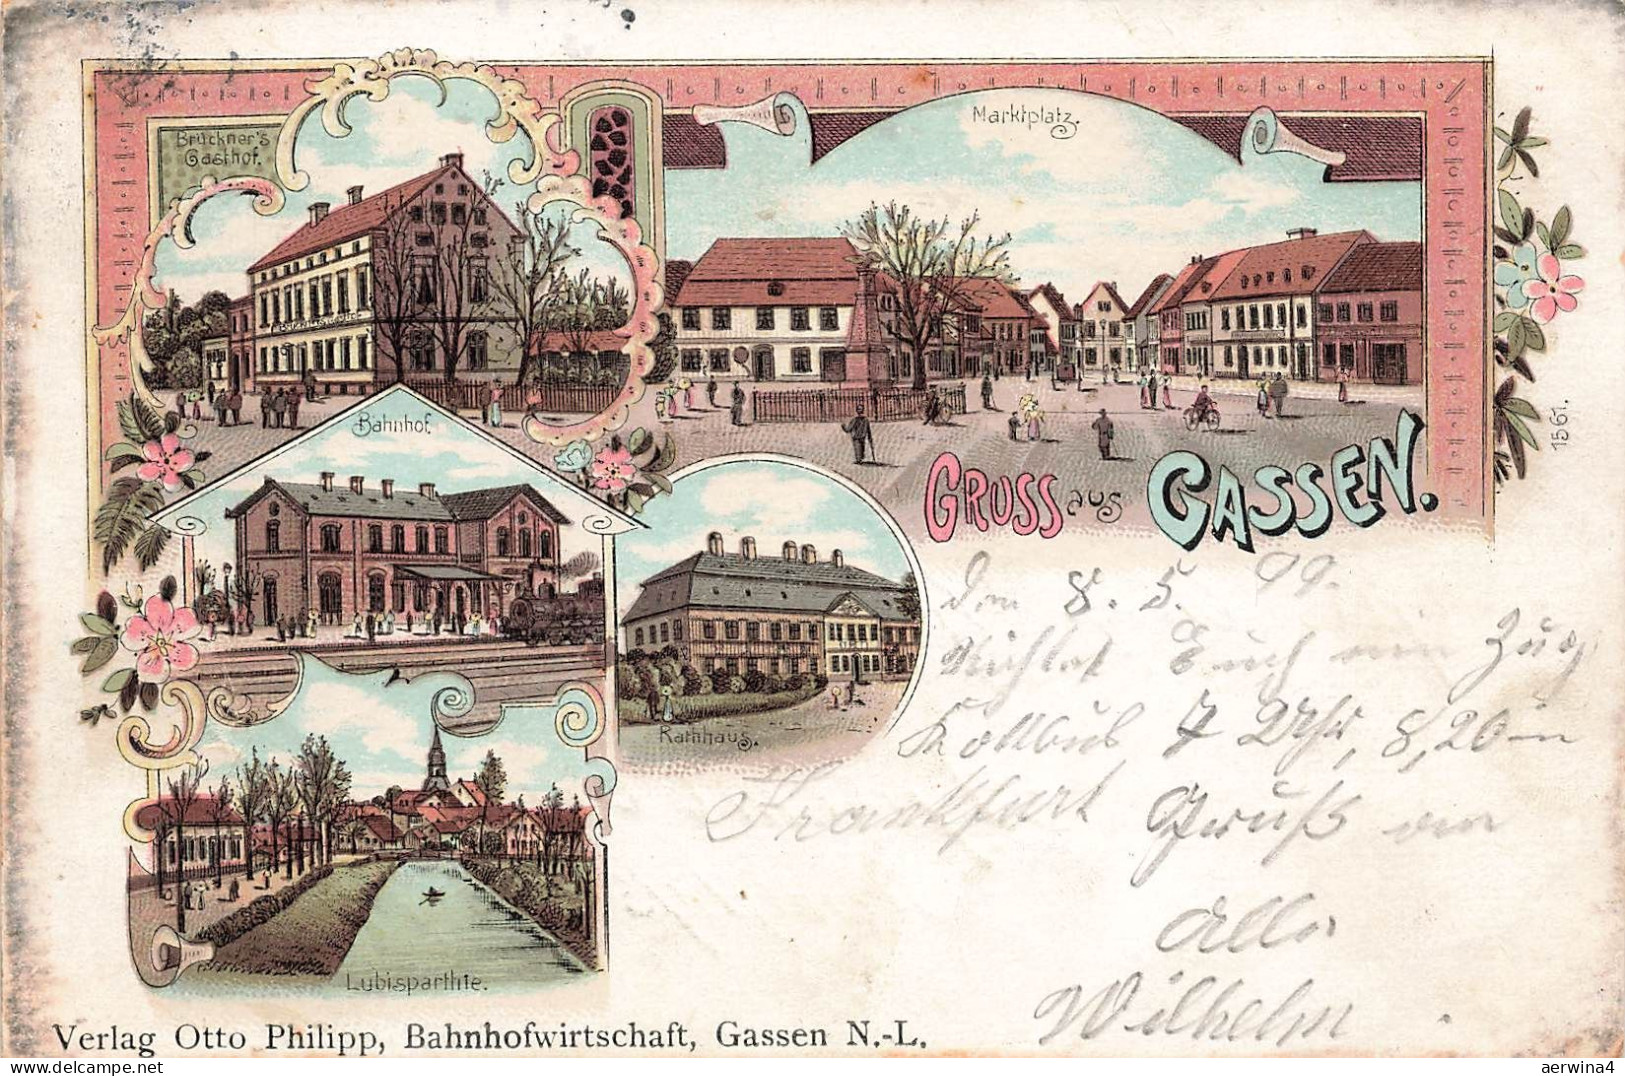 Brückner's
Gasthof.
Marktplatz.
Bahnhof.
GRUSS aus GASSEN.
1561.
Rathhaus.
Lubisparthie.
den 8. 5. 99.
Richtet Euch ein Zug
Kottbus 7 Uhr, 8,20
Frankfurt Gruß an
Alle
Wilhelm
Verlag Otto Philipp, Bahnhofwirtschaft, Gassen N.-L.
aerwina4